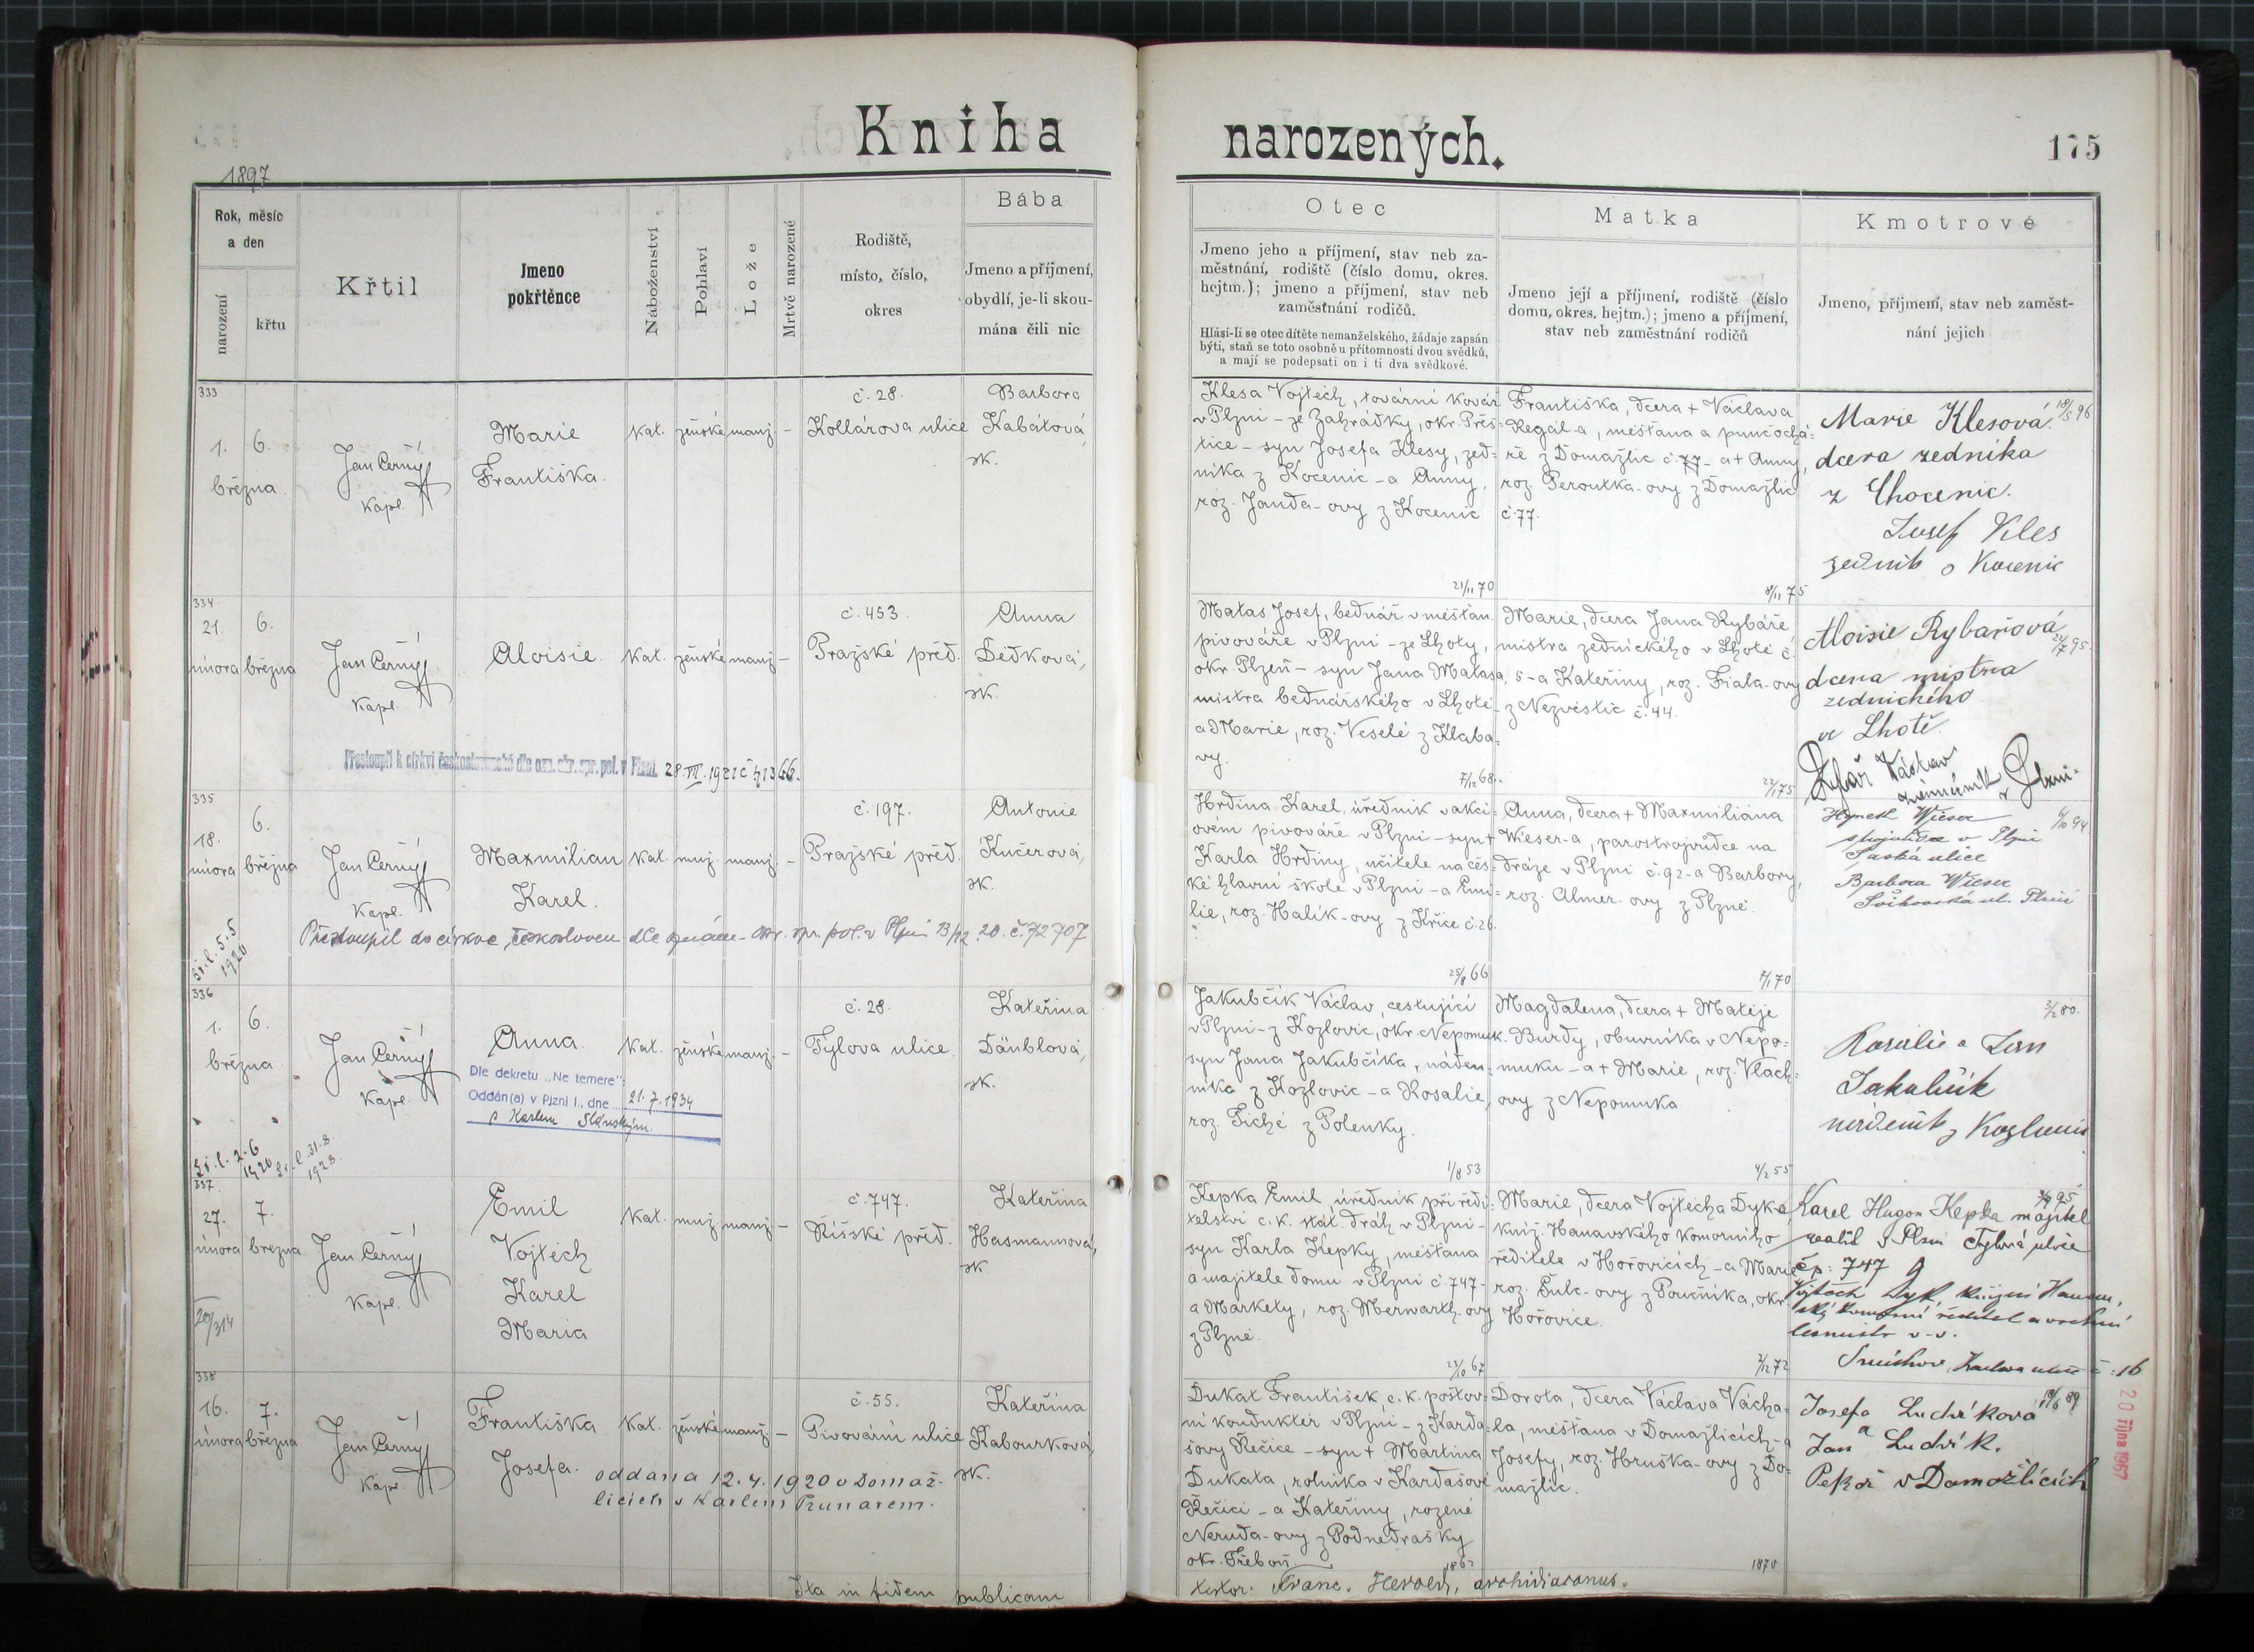 Kniha narozených.
175
1897
Rok, měsíc
a den
narození
křtu
Křtil
Jmeno
pokřtěnce
Náboženství
Pohlaví
Lože
Mrtvě narozené
Rodiště,
místo, číslo,
okres
Bába
Jmeno a příjmení,
obydlí, je-li skou-
mána čili nic
Otec
Jmeno jeho a příjmení, stav neb za-
městnání, rodiště (číslo domu, okres.
hejtm.); jmeno a příjmení, stav neb
zaměstnání rodičů.
Hlásí-li se otec dítěte nemanželského, žádaje zapsán
býti, staň se toto osobně u přítomnosti dvou svědků,
a mají se podepsati on i ti dva svědkové.
Matka
Jmeno její a příjmení, rodiště (číslo
domu, okres. hejtm.); jmeno a příjmení,
stav neb zaměstnání rodičů
Kmotrové
Jmeno, příjmení, stav neb zaměst-
nání jejich
333
1. 6.
března
Jan Černý
Kapl.
Marie
Františka.
Kat. ženské manž. –
č. 28.
Kollárova ulice
Barbora
Kabátová,
zk.
Klesa Vojtěch, tovární kovář
v Plzni – ze Zahrádky, okr. Přeš-
tice – syn Josefa Klesy, zed-
níka z Kocenic – a Anny,
roz. Janda-ovy z Kocenic
21/11 70
Františka, dcera + Václava
Regál-a, měšťana a punčochá-
ře z Domažlic č. 77 – a + Anny,
roz. Peroutka-ovy z Domažlic
č. 77.
8/11 75
Marie Klesová 18/5 96
dcera zedníka
z Chocenic.
Josef Kles
zedník o Kocenic
334
21. 6.
února března
Jan Černý
Kapl.
Aloisie.
Kat. ženské manž. –
č. 453.
Pražské před.
Anna
Dědková,
zk.
Přestoupil k církvi československé dle ozn. okr. spr. pol. v Plzni 28. VII. 1921 č 41366.
Matas Josef, bednář v měšťan.
pivováře v Plzni – ze Lhoty,
okr. Plzeň – syn Jana Matasa,
mistra bednářského v Lhotě
a Marie, roz. Veselé z Klaba-
vy.
7/12 68.
Marie, dcera Jana Rybáře
mistra zednického v Lhotě č.
5 – a Kateřiny, roz. Fiala-ovy
z Nezvěstic č. 44.
22/1 75
Aloisie Rybařová
dcera mistra
zednického
ve Lhotě.
Rybář Václav
v Plzni.
335
18. 6.
února března
Jan Černý
Kapl.
Maxmilian
Karel.
Kat. muž. manž. –
č. 197.
Pražské před.
Antonie
Kučerová,
zk.
Přestoupil do církve českosloven dle oznám. okr. spr. pol. v Plzni 13/12. 20. č. 72707
5. 5
1920
Hrdina Karel, úředník v akci-
ovém pivováře v Plzni – syn +
Karla Hrdiny, učitele na čes-
ké hlavní škole v Plzni – a Emi-
lie, roz. Halík-ovy z Křice č. 26.
25/8 66
Anna, dcera + Maxmiliána
Wieser-a, parostrojvůdce na
dráze v Plzni č. 92 – a Barbory,
roz. Almer-ovy z Plzně.
7/1 70
Hynek Wieser
strojvůdce v Plzni
Saská ulice
Barbora Wieser
336
1. 6.
března
Jan Černý
Kapl.
Anna.
Kat. ženské manž. –
č. 28.
Tylova ulice.
Kateřina
Däublová,
zk.
Dle dekretu „Ne temere":
Oddán(a) v Plzni I., dne 21. 7. 1934
s Karlem Slánským.
2. 6
1920
31. 8.
1928
Jakubčík Václav, cestující
v Plzni – z Kozlovic, okr. Nepomuk
syn Jana Jakubčíka, náden-
níka z Kozlovic – a Rosalie,
roz. Tiché z Polenky.
1/8 53
Magdalena, dcera + Matěje
Burdy, obuvníka v Nepo-
muku – a + Marie, roz. Vlach-
ovy z Nepomuka
4/2 55
3/2 80.
Rosalie a Jan
Jakubčík
337
27. 7.
února března
Jan Černý
Kapl.
Emil
Vojtěch
Karel
Maria
Kat. muž. manž. –
č. 747.
Říšské před.
Kateřina
Hasmannová,
zk
Kepka Emil, úředník při ředi-
telství c. k. stát. dráh v Plzni –
syn Karla Kepky, měšťana
a majitele domu v Plzni č. 747 –
a Markety, roz. Merwarth-ovy
z Plzně.
23/10 67
Marie, dcera Vojtěcha Dyka,
kníž. Hanavského komorního
ředitele v Hořovicích – a Marie
roz. Šulc-ovy z Poučníka, okr.
Hořovice.
2/12 72
Karel Hugon Kepka majitel
realit v Plzni Tylová ulice
čp: 747
Vojtěch Dyk, knížecí Hanau-
ský komorní ředitel a vrchní
lesmistr v. v.
Smíchov, Karlova ulice č. 16
338
16. 7.
února března
Jan Černý
Kapl.
Františka
Josefa.
Kat. ženské manž. –
č. 55.
Pivovární ulice
Kateřina
Kabourková,
zk.
oddana 12. 4. 1920 v Domaž-
licích s Karlem Prunarem.
Dukat František, c. k. poštov-
ní kondukter v Plzni – z Karda-
šovy Řečice – syn + Martina
Dukata, rolníka v Kardašově
Řečici – a Kateřiny, rozené
Neruda-ovy z Podnedrašky
okr. Třeboň.
1862
Dorota, dcera Václava Vácha-
la, měšťana v Domažlicích – a
Josefy, roz. Hruška-ovy z Do-
mažlic.
1870
Josefa Ludvíková
a
Jan Ludvík.
Pekař v Domažlicích
20 října 1967
Ita in fidem publicam
testor: Franc. Herold, archidiaconus.